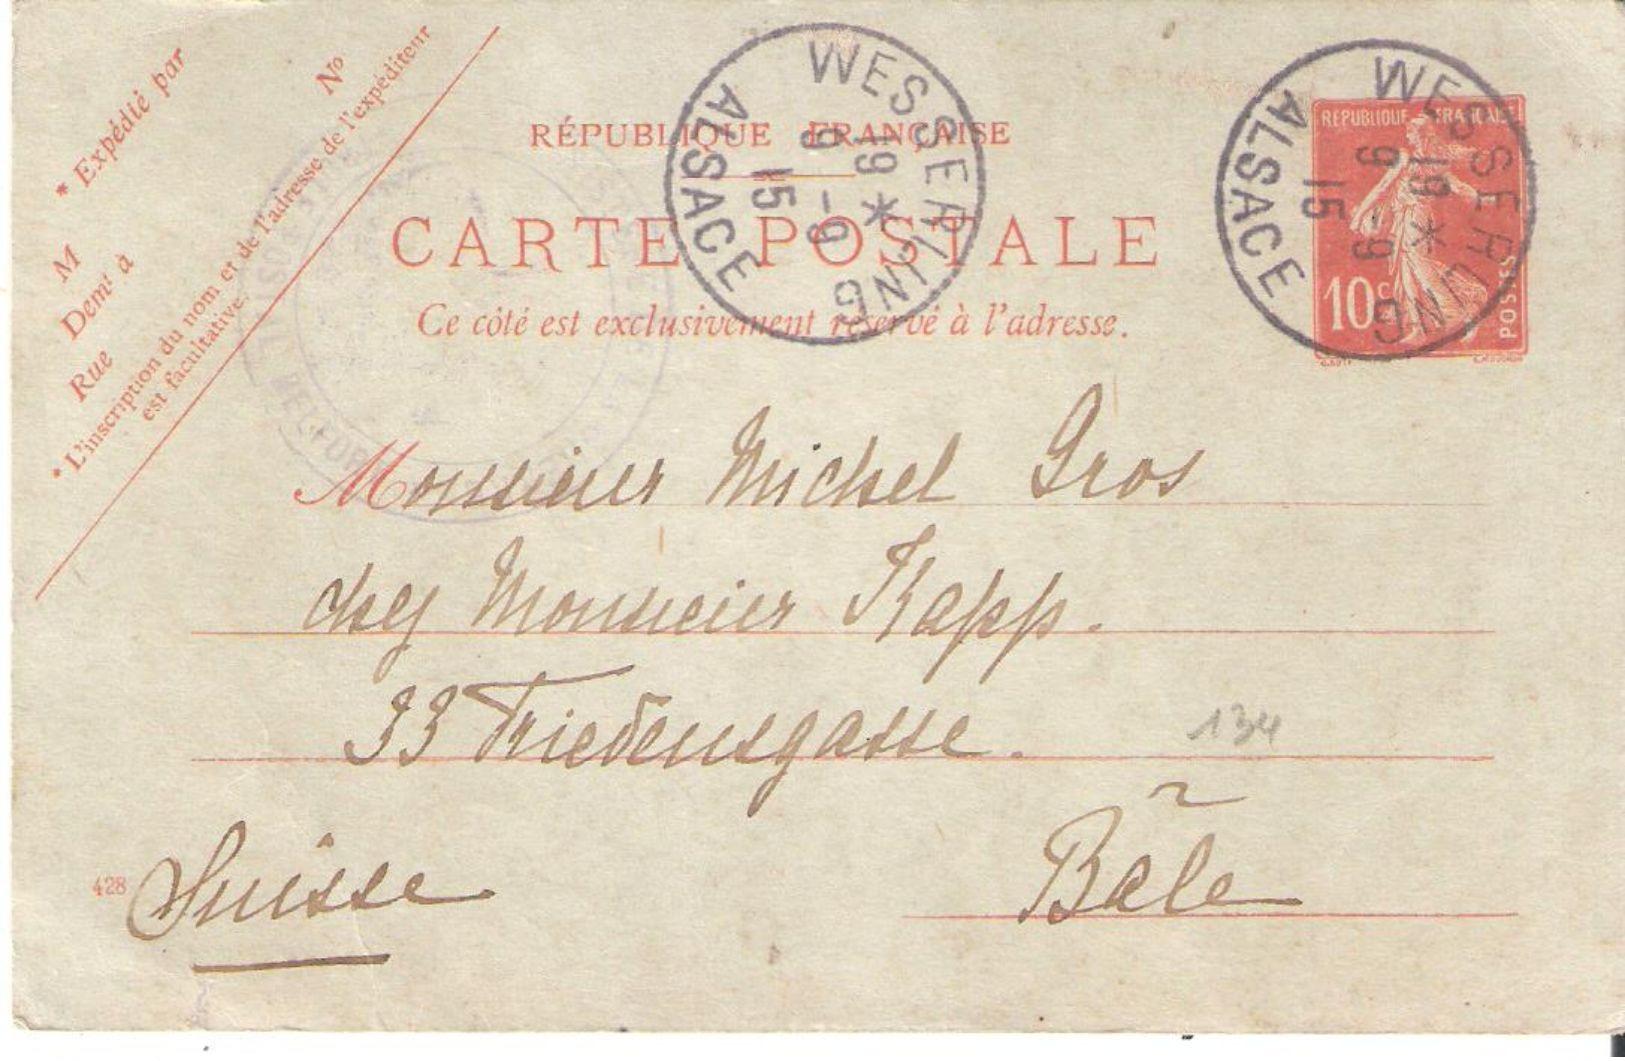 * Expédié par
No
M
Demt à
Rue
* L'inscription du nom et de l'adresse de l'expéditeur
est facultative.
RÉPUBLIQUE FRANÇAISE
CARTE POSTALE
Ce côté est exclusivement réservé à l'adresse.
WESSERLING
19 *
9 - 9
15
ALSACE
WESSERLING
19 *
9 - 9
15
ALSACE
RÉPUBLIQUE FRANÇAISE
10c
POSTES
BELFORT
Monsieur Michel Gros
chez Monsieur Kapp.
33 Friedensgasse.
134
Bâle
428
Suisse